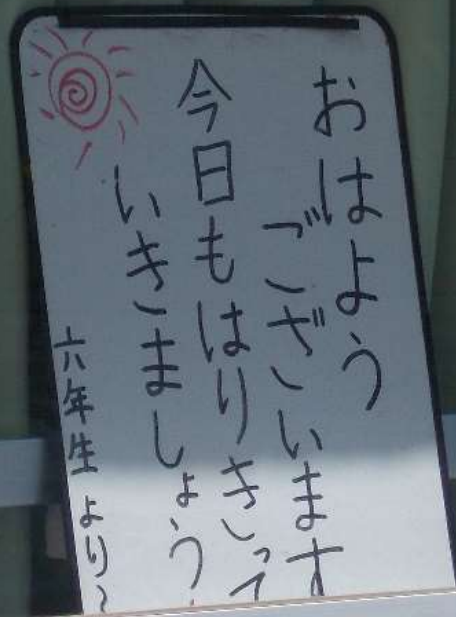 おはよう
ございます
今日もはりきって
いきましょう
六年生より〜